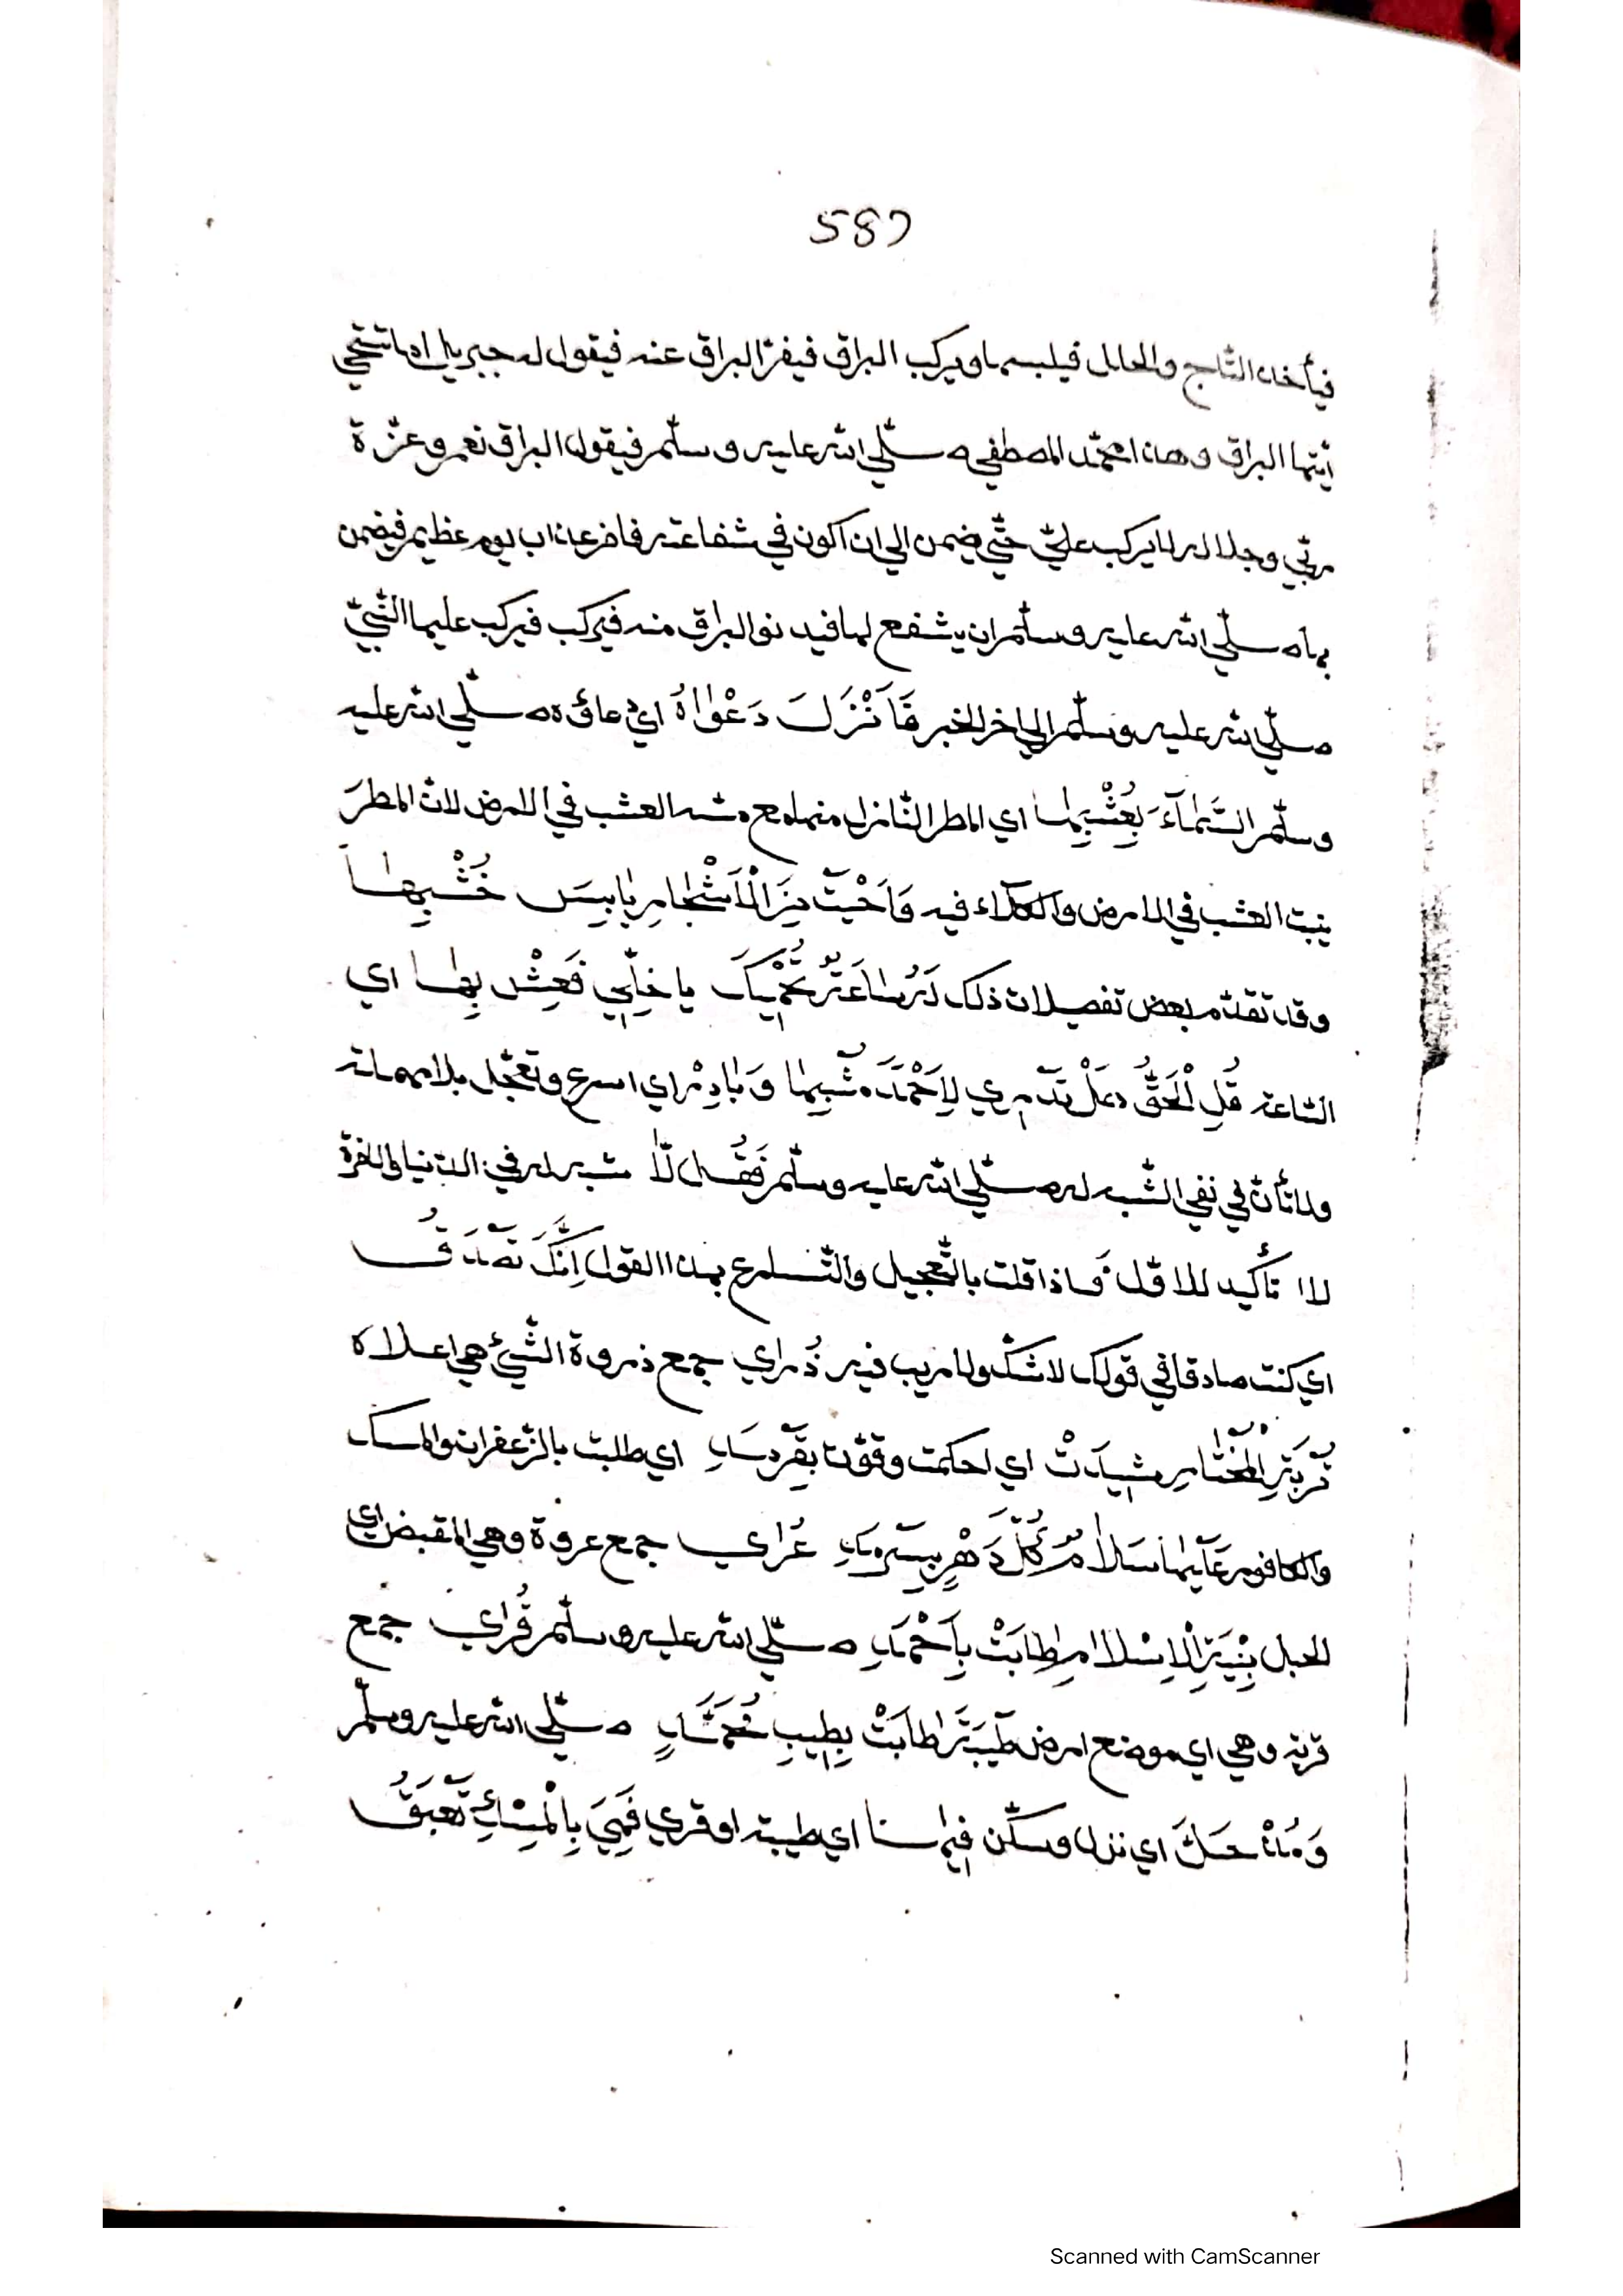 587
فيأخذ التّاج والحلل فيلبسهما ويركب البراق فيفرّ البراق عنه فيقول له جبريل اما تستحي
ايّتها البراق وهذا محمّد المصطفي صلّي الله عليه وسلّم فيقول البراق نعم وعزّة
ربّي وجلاله لا يركب عليّ حتّي يضمن الي ان اكون في شفاعته فافز عذاب يوم عظيم فيضمن
بها صلّي الله عليه وسلّم ان يشفع لها فيدنو البراق منه فيركب فيركب عليها النّبيّ
صلّي الله عليه وسلّم الي اخر الخبر فَاَنْزَلَ دَعْوَاهُ اي دعاؤه صلّي الله عليه
وسلّم السَّمَآءَ بِعُشْبِهَا اي المطر النّازل منها مع العشب في الارض لانّ المطرَ
ينبت العشب في الارض والكلاء فيه وَاَحْيَتْ مِنَ الْاَشْجَارِ يَابِسَ خُشْبِهَا
وقد تقدّم بعض تفصيلات ذلك يا خِلِّيِ فَعِشْ بِهَا اي
السّاعة قُلِ الْحَقَّ هَلْ تَدْرِي لِاَحْمَدَ مُشْبِهًا وَبَادِرْ اي اسرع وتعجّل بلا مهملة
ولا تأنّ في نفي الشّبه له صلّي الله عليه وسلّم فَقُلْ لَا شبه له في الدّنيا والاخرة
لا تأكيد للاوّل فَاذا قلت بالتّعجيل والتّسارع بهذا القول اِنَّكَ تَصْدُقُ
اي كنت صادقا في قولك لا شكّ ولا ريب فيه ذُرَاي جمع ذروة الشّيئ هي اعلاه
تُرْبَةِ الْمُخْتَارِ شِيدَتْ اي احكمت وقوّت اي طلبت بالزّعفران والمسك
والكافور عَلَيْهَا سَلَامٌ كُلَّ دَهْرٍ عُرَاي جمع عروة وهي المقبض اي
الحبل بِنْيَةِ الْاِسْلَامِ طَابَتْ بِاَحْمَدِ صلّي الله عليه وسلّم قُرَاي جمع
قرية وهي اي موضع ارض طَيْبَةَ طَابَتْ بِطِيبِ مُحَمَّدٍ صلّي الله عليه وسلّم
وَمُذْ حَلَّ اي نزل وسكّن فِيهَا اي طيبة او قري فَهِيَ بِالْمِسْكِ تَعْبَقُ
Scanned with CamScanner